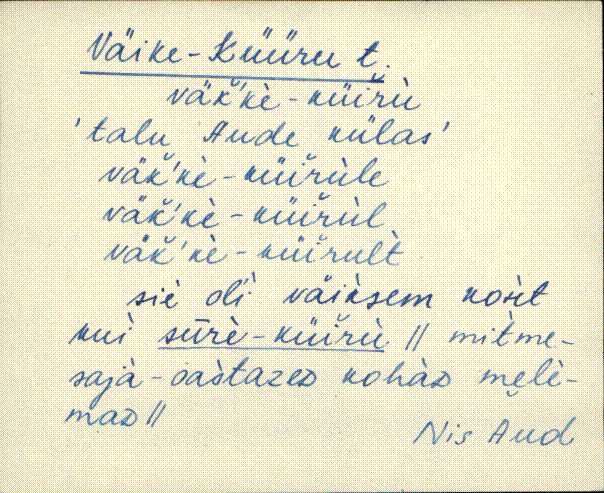 Väike-Küüru t.
väk̆'kè-küi̮r̆ù
'talu Aude külas'
väk̆'kè-küi̮r̆ùle
väk̆'kè-küi̮r̆ùl
väk̆'kè-küi̮r̆ult̀
siè ol'i väik̀sem koh̀t
kui̮ sūrè-küi̮r̆ù // mit̀me-
sajà-oas̀tazeᴅ kohàᴅ mẹlè-
maᴅ //
Nis Aud